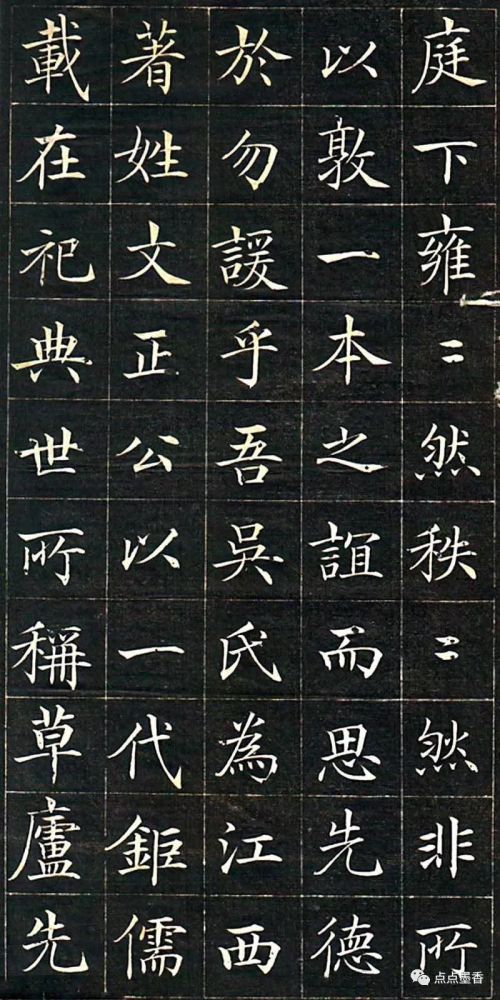 庭下雍〻然秩〻然非所
以敦一本之誼而思先德
於勿諼乎吾吳氏為江西
著姓文正公以一代鉅儒
載在祀典世所稱草廬先
点点墨香